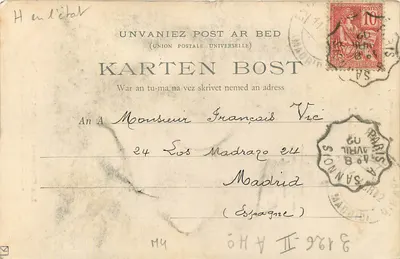 H en l'état
UNVANIEZ POST AR BED
(UNION POSTALE UNIVERSELLE)
10
KARTEN BOST
War an tu-ma, na vez skrivet nemed an adress
An A Monsieur François Vic
24 Los Madrazo 24
Madrid
(Espagne)
PARIS A SANNOIS
Nº B
AVRIL
02
M4
3126-II A HO